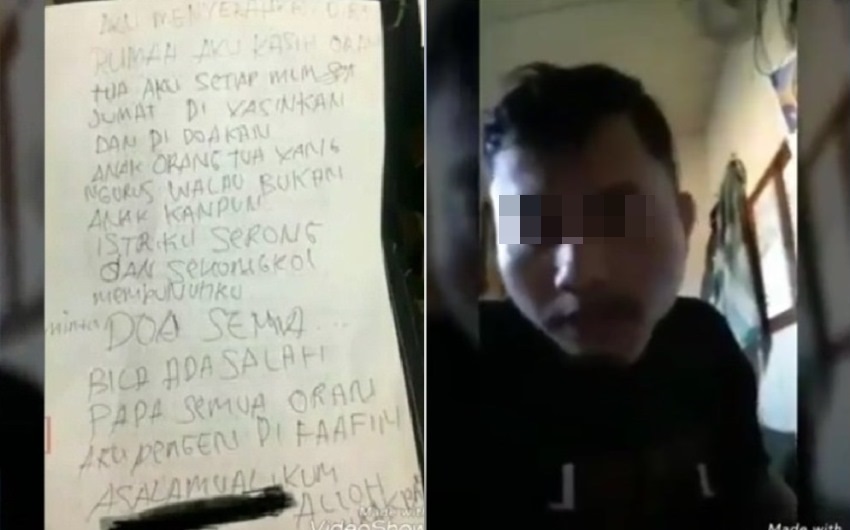 AKU MENYERAHKAN DIRI
RUMAH AKU KASIH ORAN
TUA AKU SETIAP MLM
JUMAT DI YASINKAN
DAN DI DOAKAN
ANAK ORANG TUA YANG
NGURUS WALAU BUKAN
ANAK KANDUN
ISTRIKU SERONG
DAN SEKONGKOL
MEMBUNUHKU
minta DOA SEMUA...
BILA ADA SALAH
PAPA SEMUA ORAN
AKU PENGEN DI MAAFIN
ASALAMUALIKUM
ALLOH
Made with
VideoShow
Made with